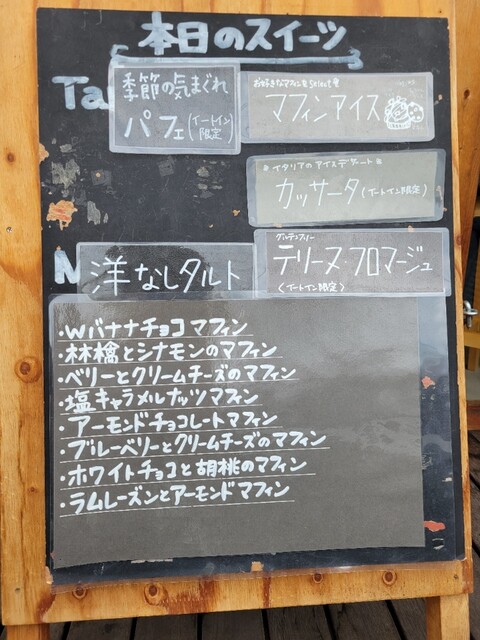 本日のスイーツ
Ta
季節の気まぐれ
パフェ(イートイン限定)
お好きなマフィンをSelect
マフィンアイス
イタリアのアイスデザート
カッサータ(イートイン限定)
M
洋なしタルト
グルテンフリー
テリーヌ・フロマージュ
(イートイン限定)
・Wバナナチョコマフィン
・林檎とシナモンのマフィン
・ベリーとクリームチーズのマフィン
・塩キャラメルナッツマフィン
・アーモンドチョコレートマフィン
・ブルーベリーとクリームチーズのマフィン
・ホワイトチョコと胡桃のマフィン
・ラムレーズンとアーモンドマフィン